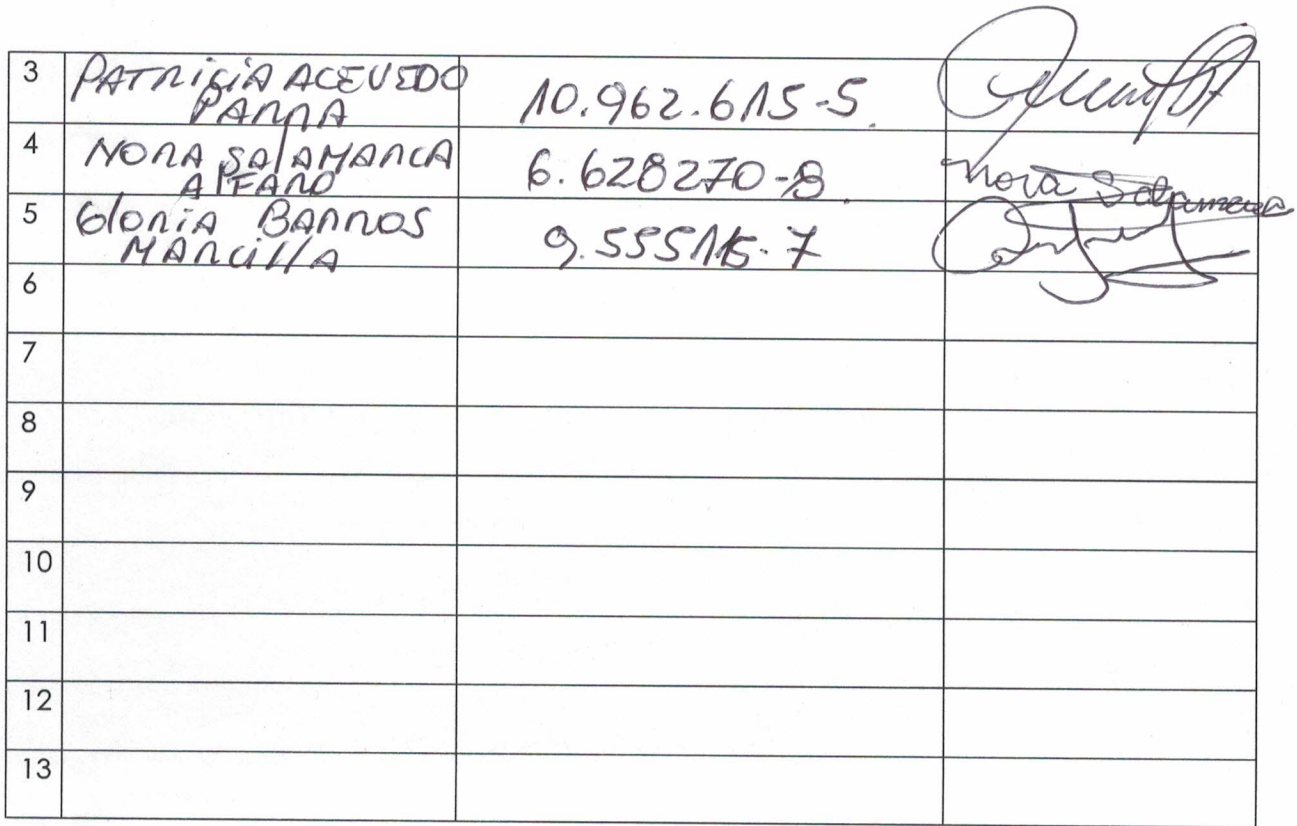 3 PATRICIA ACEVEDO
PARRA 10.962.615-5
4 NORA SALAMANCA
ALFARO 6.628270-8 Nora Salamanca
5 Gloria BARROS
MARCILLA 9.555115-7
6
7
8
9
10
11
12
13